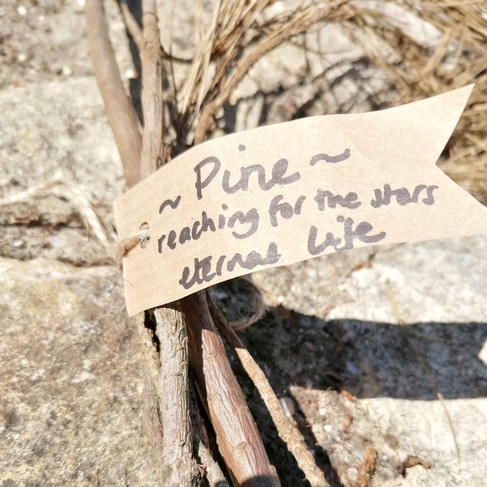 ~ Pine ~
reaching for the stars
eternal life